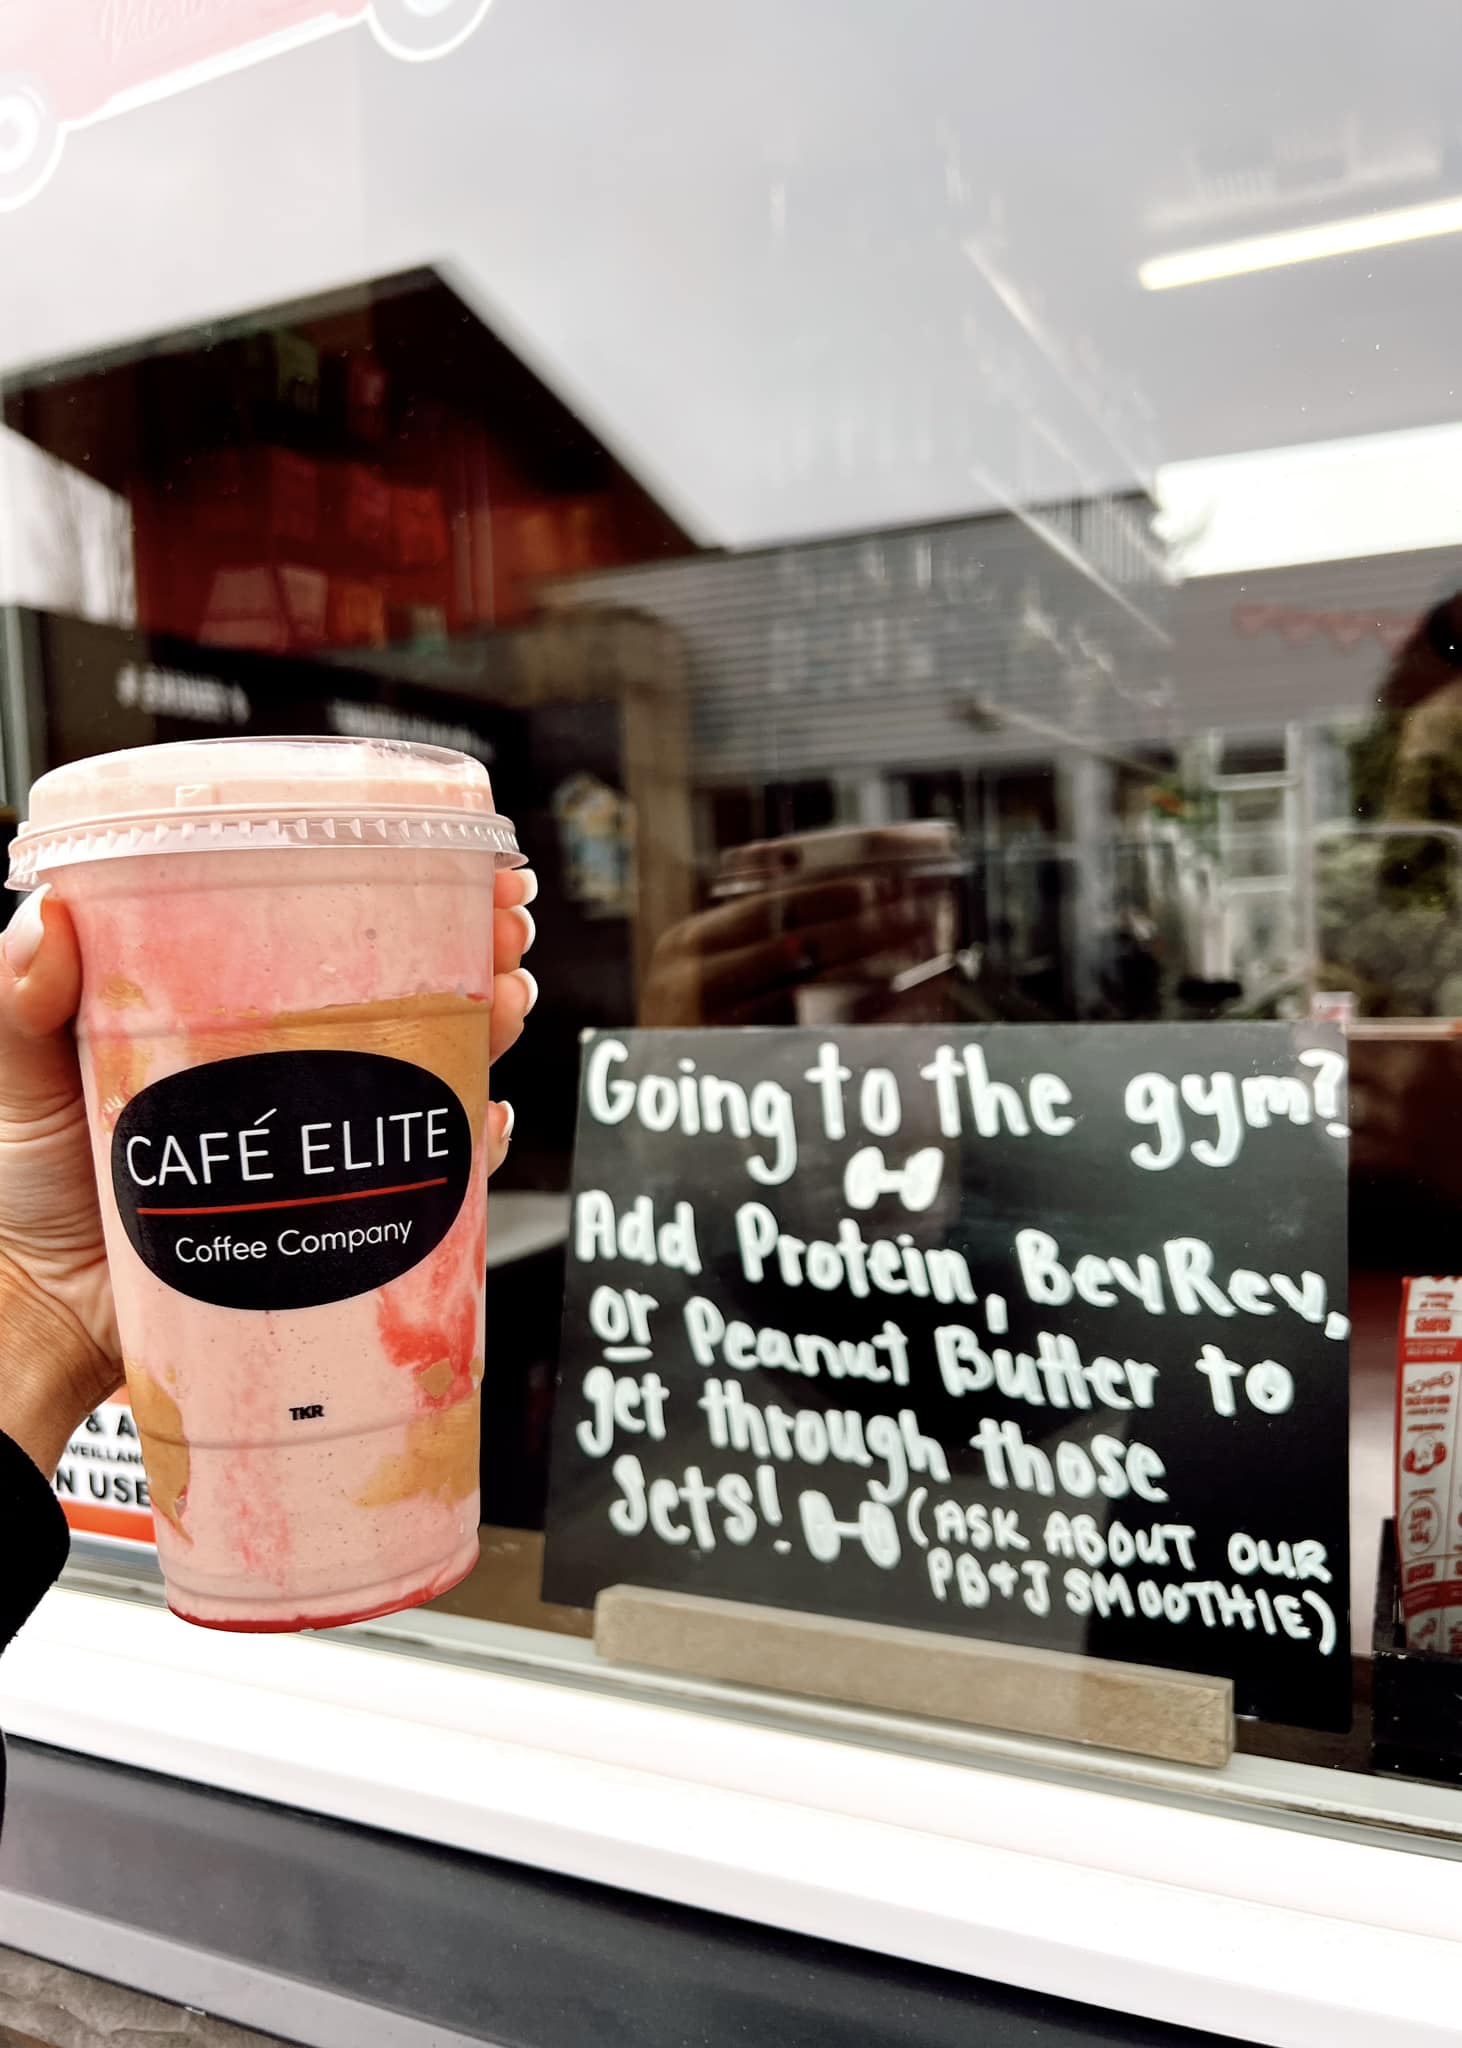 CAFÉ ELITE
Coffee Company
TKR
Going to the gym?
Add Protein, BevRev,
or Peanut Butter to
get through those
sets!
(ASK ABOUT OUR
PB+J SMOOTHIE)
& A
VEILLAN
N USE